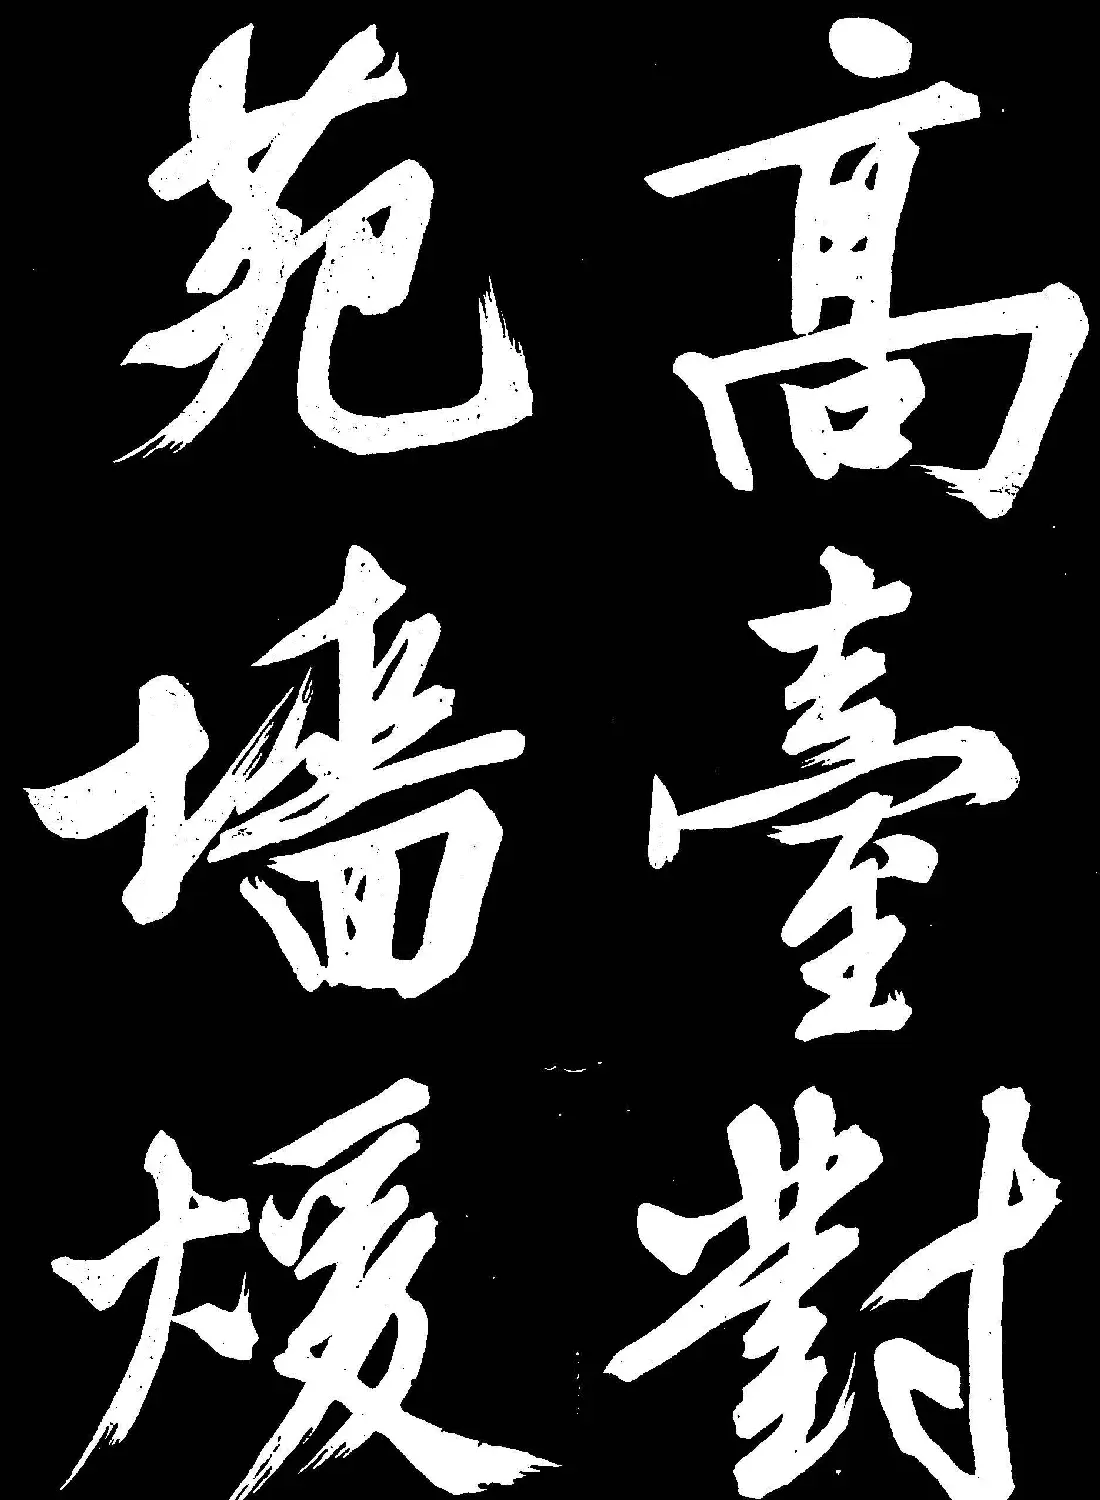 高臺對
苑墙煖